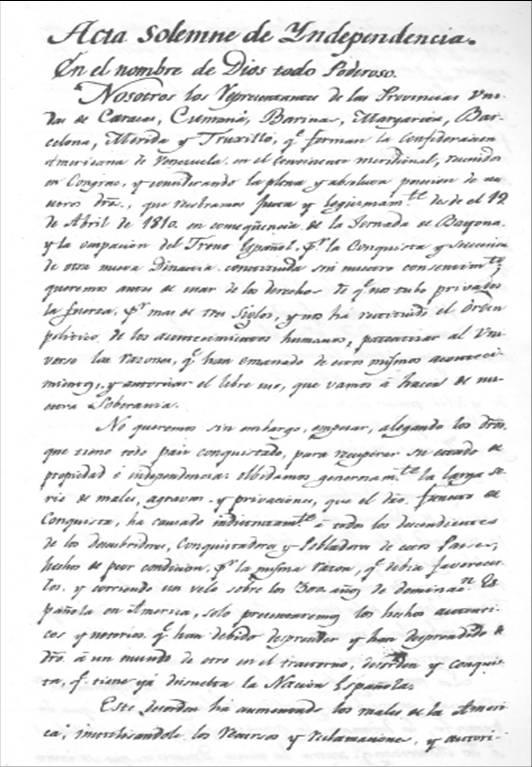 Acta solemne de Yndependencia.
En el nombre de Dios todo Poderoso.
Nosotros los Representantes de las Provincias Uni-
das de Caracas, Cumaná, Barinas, Margarita, Bar-
celona, Merida y Truxillo, qe. forman la Confederacion
Americana de Venezuela en el Continente meridional, reunidos
en Congreso, y considerando la plena y absoluta posesion de nu-
estros dros., que recobramos justa y legitimamte. desde el 19
de Abril de 1810. en conseqüencia de la Jornada de Bayona,
y la ocupacion del Trono Español, pr. la Conquista y sucesion
de otra nueva Dinastia constituida sin nuestro consentimto.
queremos antes de usar de los derechos de qe. nos tubo privados
la fuerza, pr. mas de tres siglos, y nos ha restituido el Orden
politico de los acontecimientos humanos, patentizar al Uni-
verso las razones, qe. han emanado de estos mismos aconteci-
mientos, y autorizar el libre uso, que vamos á hacer de nu-
estra Soberania.
No queremos sin embargo, empezar, alegando los dros.
que tiene todo pais conquistado, para recuperar su estado de
propiedad é independencia: olbidamos generosamte. la larga se-
rie de males, agravios y privaciones, que el dro. funesto de
Conquista, ha causado indistintamte. á todos los descendientes
de los descubridores, Conquistadores y Pobladores de estos Paises,
hechos de peor condicion, pr. la misma razon, qe. debia favorecer-
los, y corriendo un velo sobre los 300. años de dominacn. Es
pañola en America, solo presentaremos los hechos autenti-
cos y notorios qe. han debido desprender y han desprendido de
dro. á un mundo de otro en el trastorno, desorden y conquis-
ta, qe. tiene yá disuelta la Nacion Española.
Este desorden ha aumentado los males de la Ameri-
ca, inutilizandole los recursos y reclamaciones, y autori-